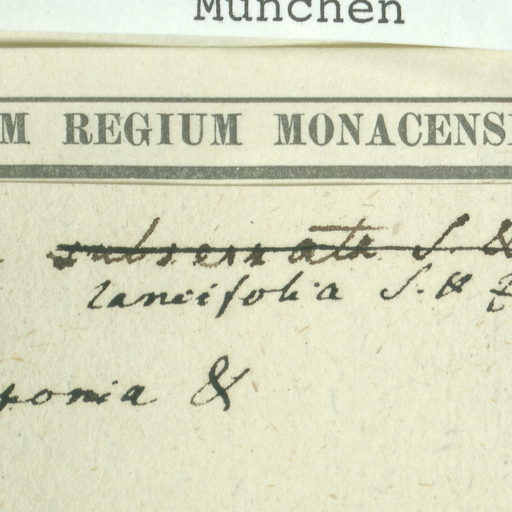 München
M REGIUM MONACENS
subserrata S. &
lancifolia S. & Z
ponia &